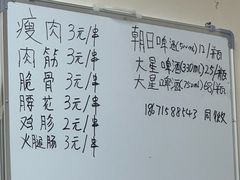 瘦肉 3元/串
肉筋 3元/串
脆骨 3元/串
腰花 3元/串
鸡胗 2元/串
火腿肠 3元/串
朝日啤酒(500ml) 12/
大星啤酒(330ml) 25/
大星啤酒(750ml) 68/瓶
18671588543 同